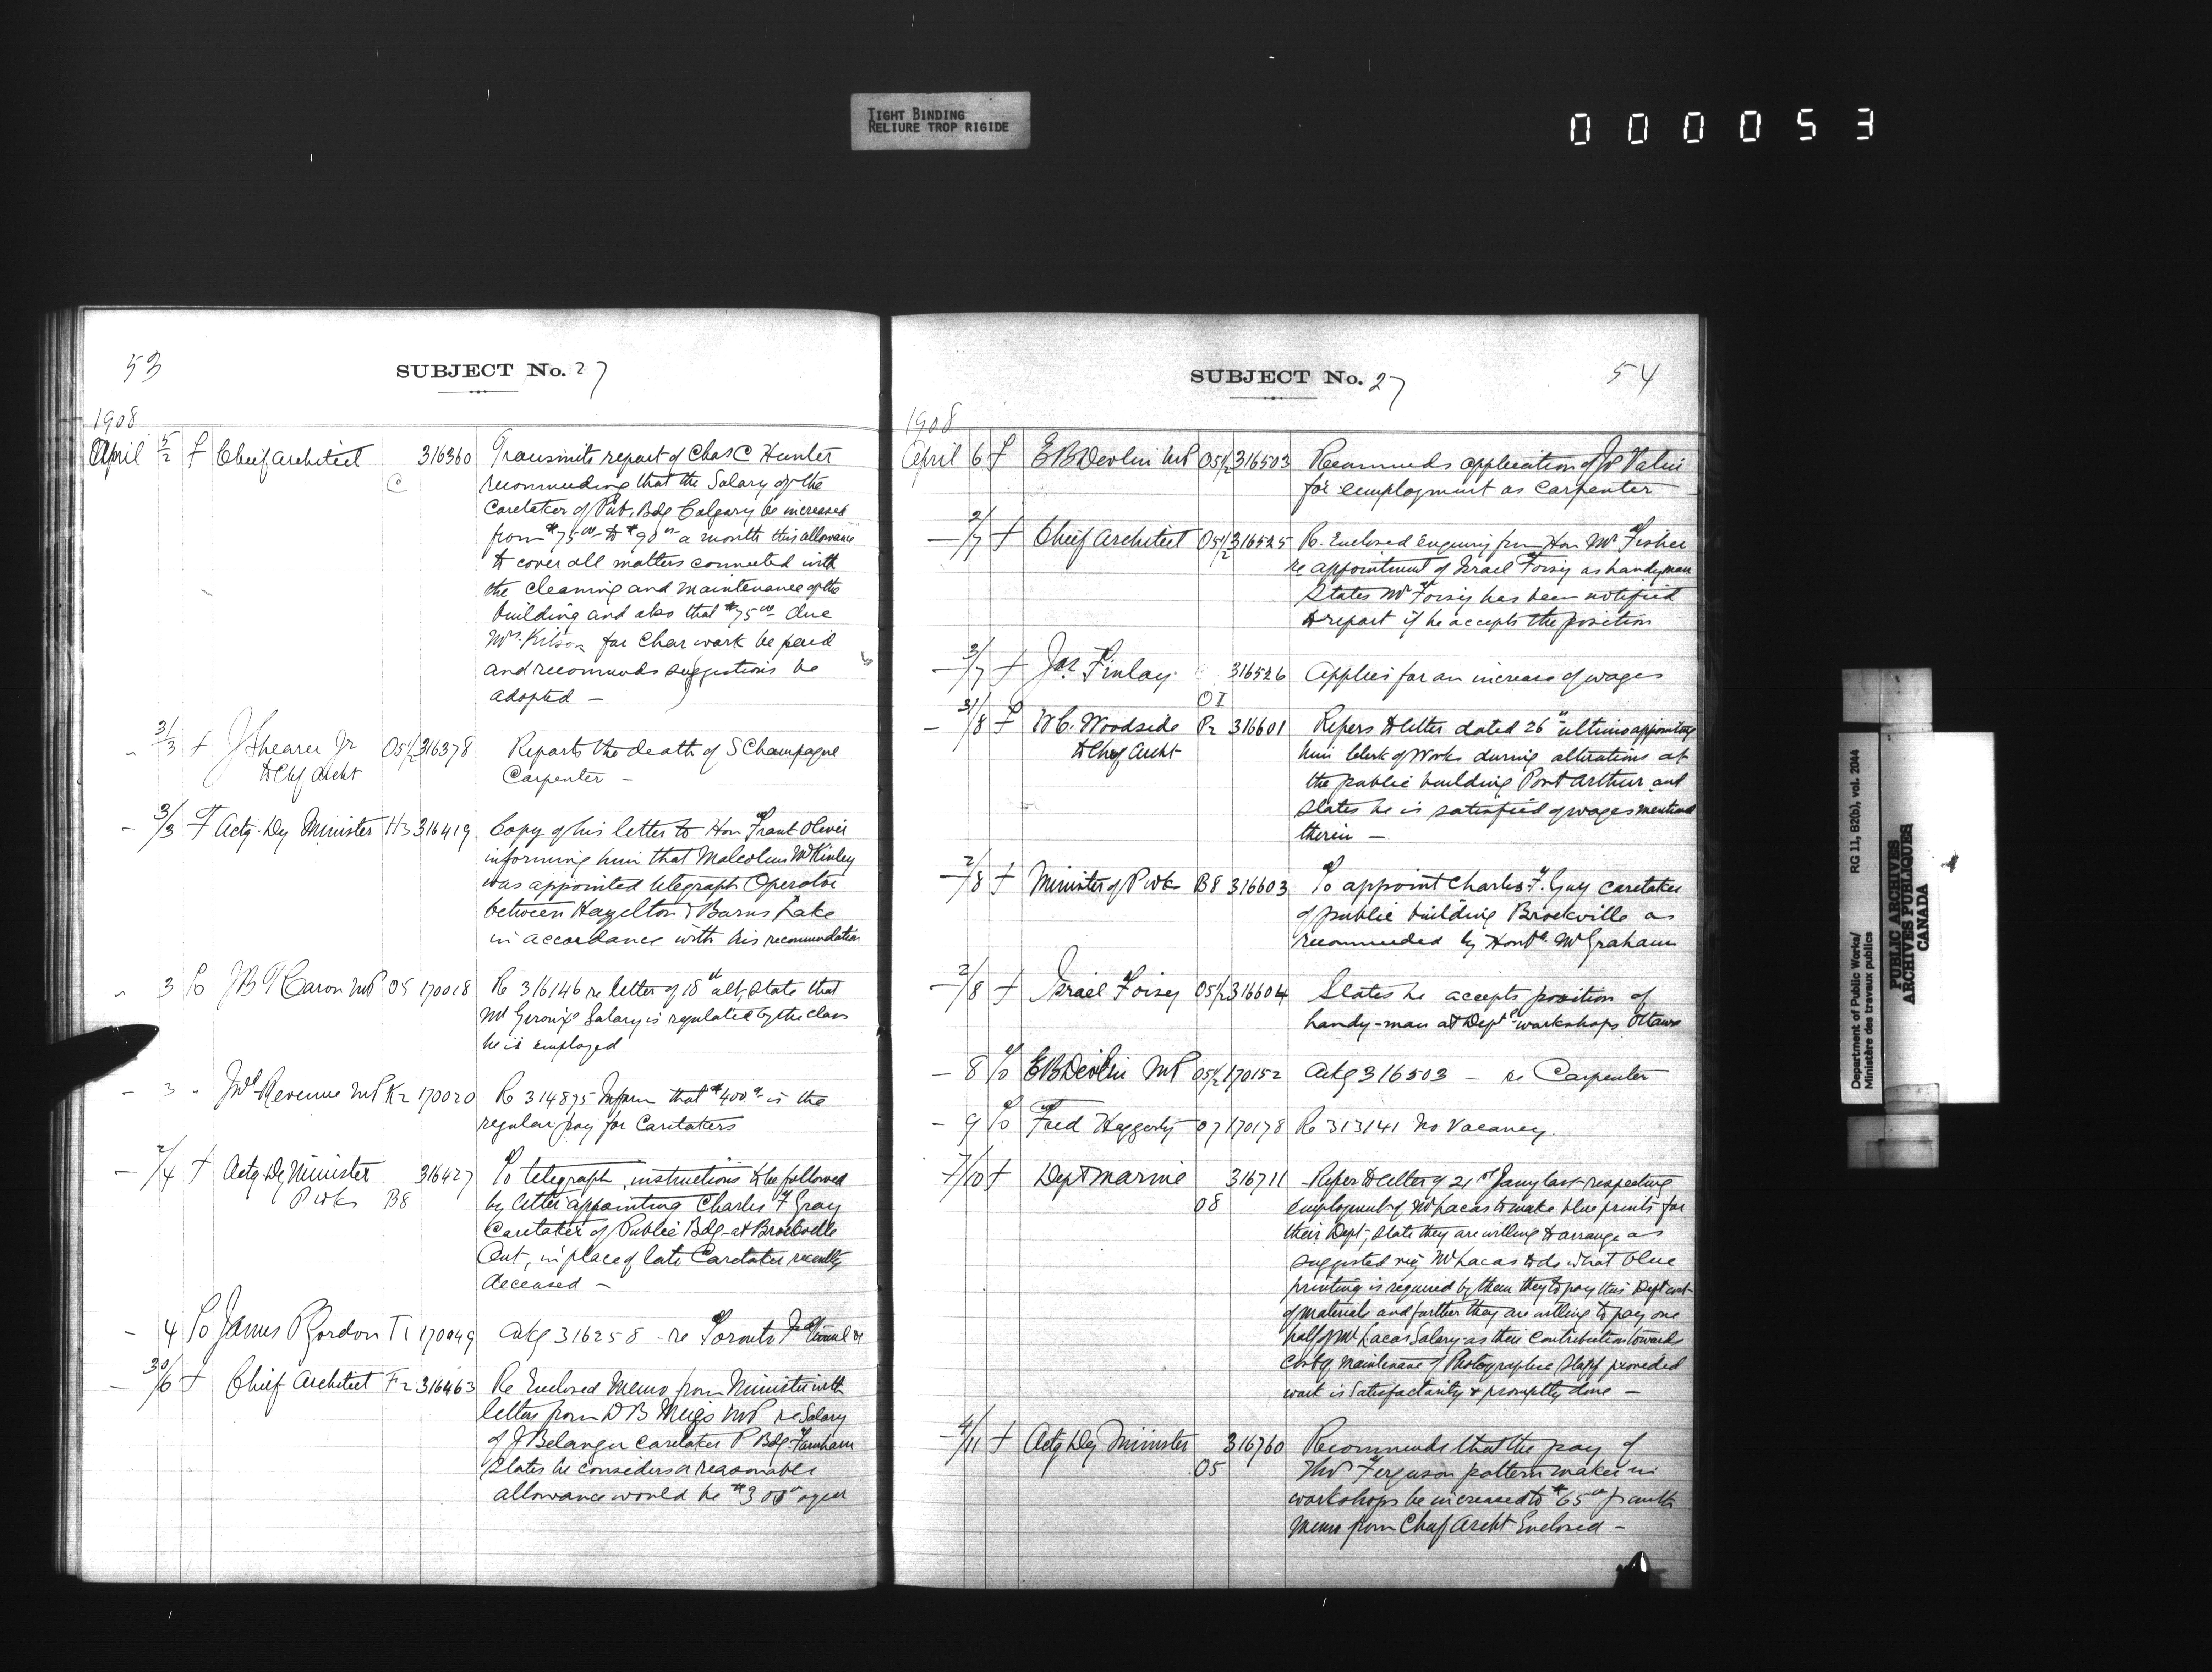 TIGHT BINDING
RELIURE TROP RIGIDE
000053
53
SUBJECT No. 27
1908
April 5/2 f Chief Architect C 316360 Transmits report of Chas C Hunter
recommending that the Salary of the
Caretaker of Pub. Bdg Calgary be increased
from $75.00 to $90.00 a month this allowance
to cover all matters connected with
the cleaning and maintenance of the
building and also that $75.00 due
Mrs. for Char work be paid
and recommends suggestions be
adopted —
" 31/3 f J Shearer Jr O5 1/2 316378 Reports the death of S Champagne
to Chf Archt Carpenter —
- 3/3 f Actg. Dy Minister H3 316419 Copy of his letter to Hon Frank Oliver
informing him that Malcolm McKinley
was appointed telegraph Operator
between Hazelton & Burns Lake
in accordance with his recommendation
" 3 To J B T Caron MP O5 170018 Re 316146 re letter of 18th ult, state that
Mr Salary is regulated by the class
he is employed
- 3 " Revenue MP K2 170020 Re 314895 Inform that $400.00 is the
regular pay for Caretakers
- 2/4 f Actg Dy Minister 316427 To telegraph instructions to be followed
P wks B8 by letter appointing Charles F Gray
Caretaker of Public Bdg at Brockville
Ont, in place of late Caretaker recently
deceased —
- 4 To James P Gordon T1 170049 Akg 316258 - re Toronto
- 30/6 f Chief Architect F2 316463 Re Enclosed Memo from Minister with
letters from D B Meigs MP re Salary
of J Belanger Caretaker P Bdg. Farnham
States he considers a reasonable
allowance would be $300.00 a year
SUBJECT No. 27
54
1908
April 6 f E B Devlin MP O5 1/2 316503 Recommends application of
for employment as Carpenter
- 2/7 f Chief Architect O5 1/2 316525 R. Enclosed Enquiry from Hon Mr Fisher
re appointment of Israel Foisy as handyman
States Mr Foisy has been notified
to report if he accepts the position
- 3/7 f Jas. Finlay O1 316526 Applies for an increase of wages
- 31/8 f W C. Woodside P2 316601 Refers to letter dated 26th ultimo appointing
to Chief Archt him Clerk of Works during alterations at
the public building Port Arthur and
states he is satisfied of wages mentioned
therein —
- 2/8 f Minister of P wks B8 316603 To appoint Charles F. Guy Caretaker
of public building Brockville as
recommended by Honble. Mr Graham
- 2/8 f Israel Foisy O5 1/2 316604 States he accepts position of
handy-man at Deptl workshops Ottawa
- 8 To E B Devlin MP O5 1/2 170152 Akg 316503 — re Carpenter
- 9 To Fred Heggerty O7 170178 Re 313141 No Vacancy.
- 7/10 f Dept Marine 316711 Refer to letter of 21st Jany last respecting
O8 employment of Mr Lacas to make blue prints for
their Dept, state they are willing to arrange as
suggested viz Mr Lacas to do what blue
printing is required by them they to pay this Dept cost
of materials and further they are willing to pay one
half of Mr Lacas Salary as their contribution towards
cost of maintenance of Photographic Staff provided
work is satisfactorily & promptly done —
- 4/11 f Actg Dy Minister 316760 Recommends that the pay of
O5 Ferguson pattern maker in
workshops be increased to $65.00 p month
Memo from Chief Archt Enclosed —
Department of Public Works/
Ministère des travaux publics
RG 11, B2(b), vol. 2044
PUBLIC ARCHIVES
ARCHIVES PUBLIQUES
CANADA